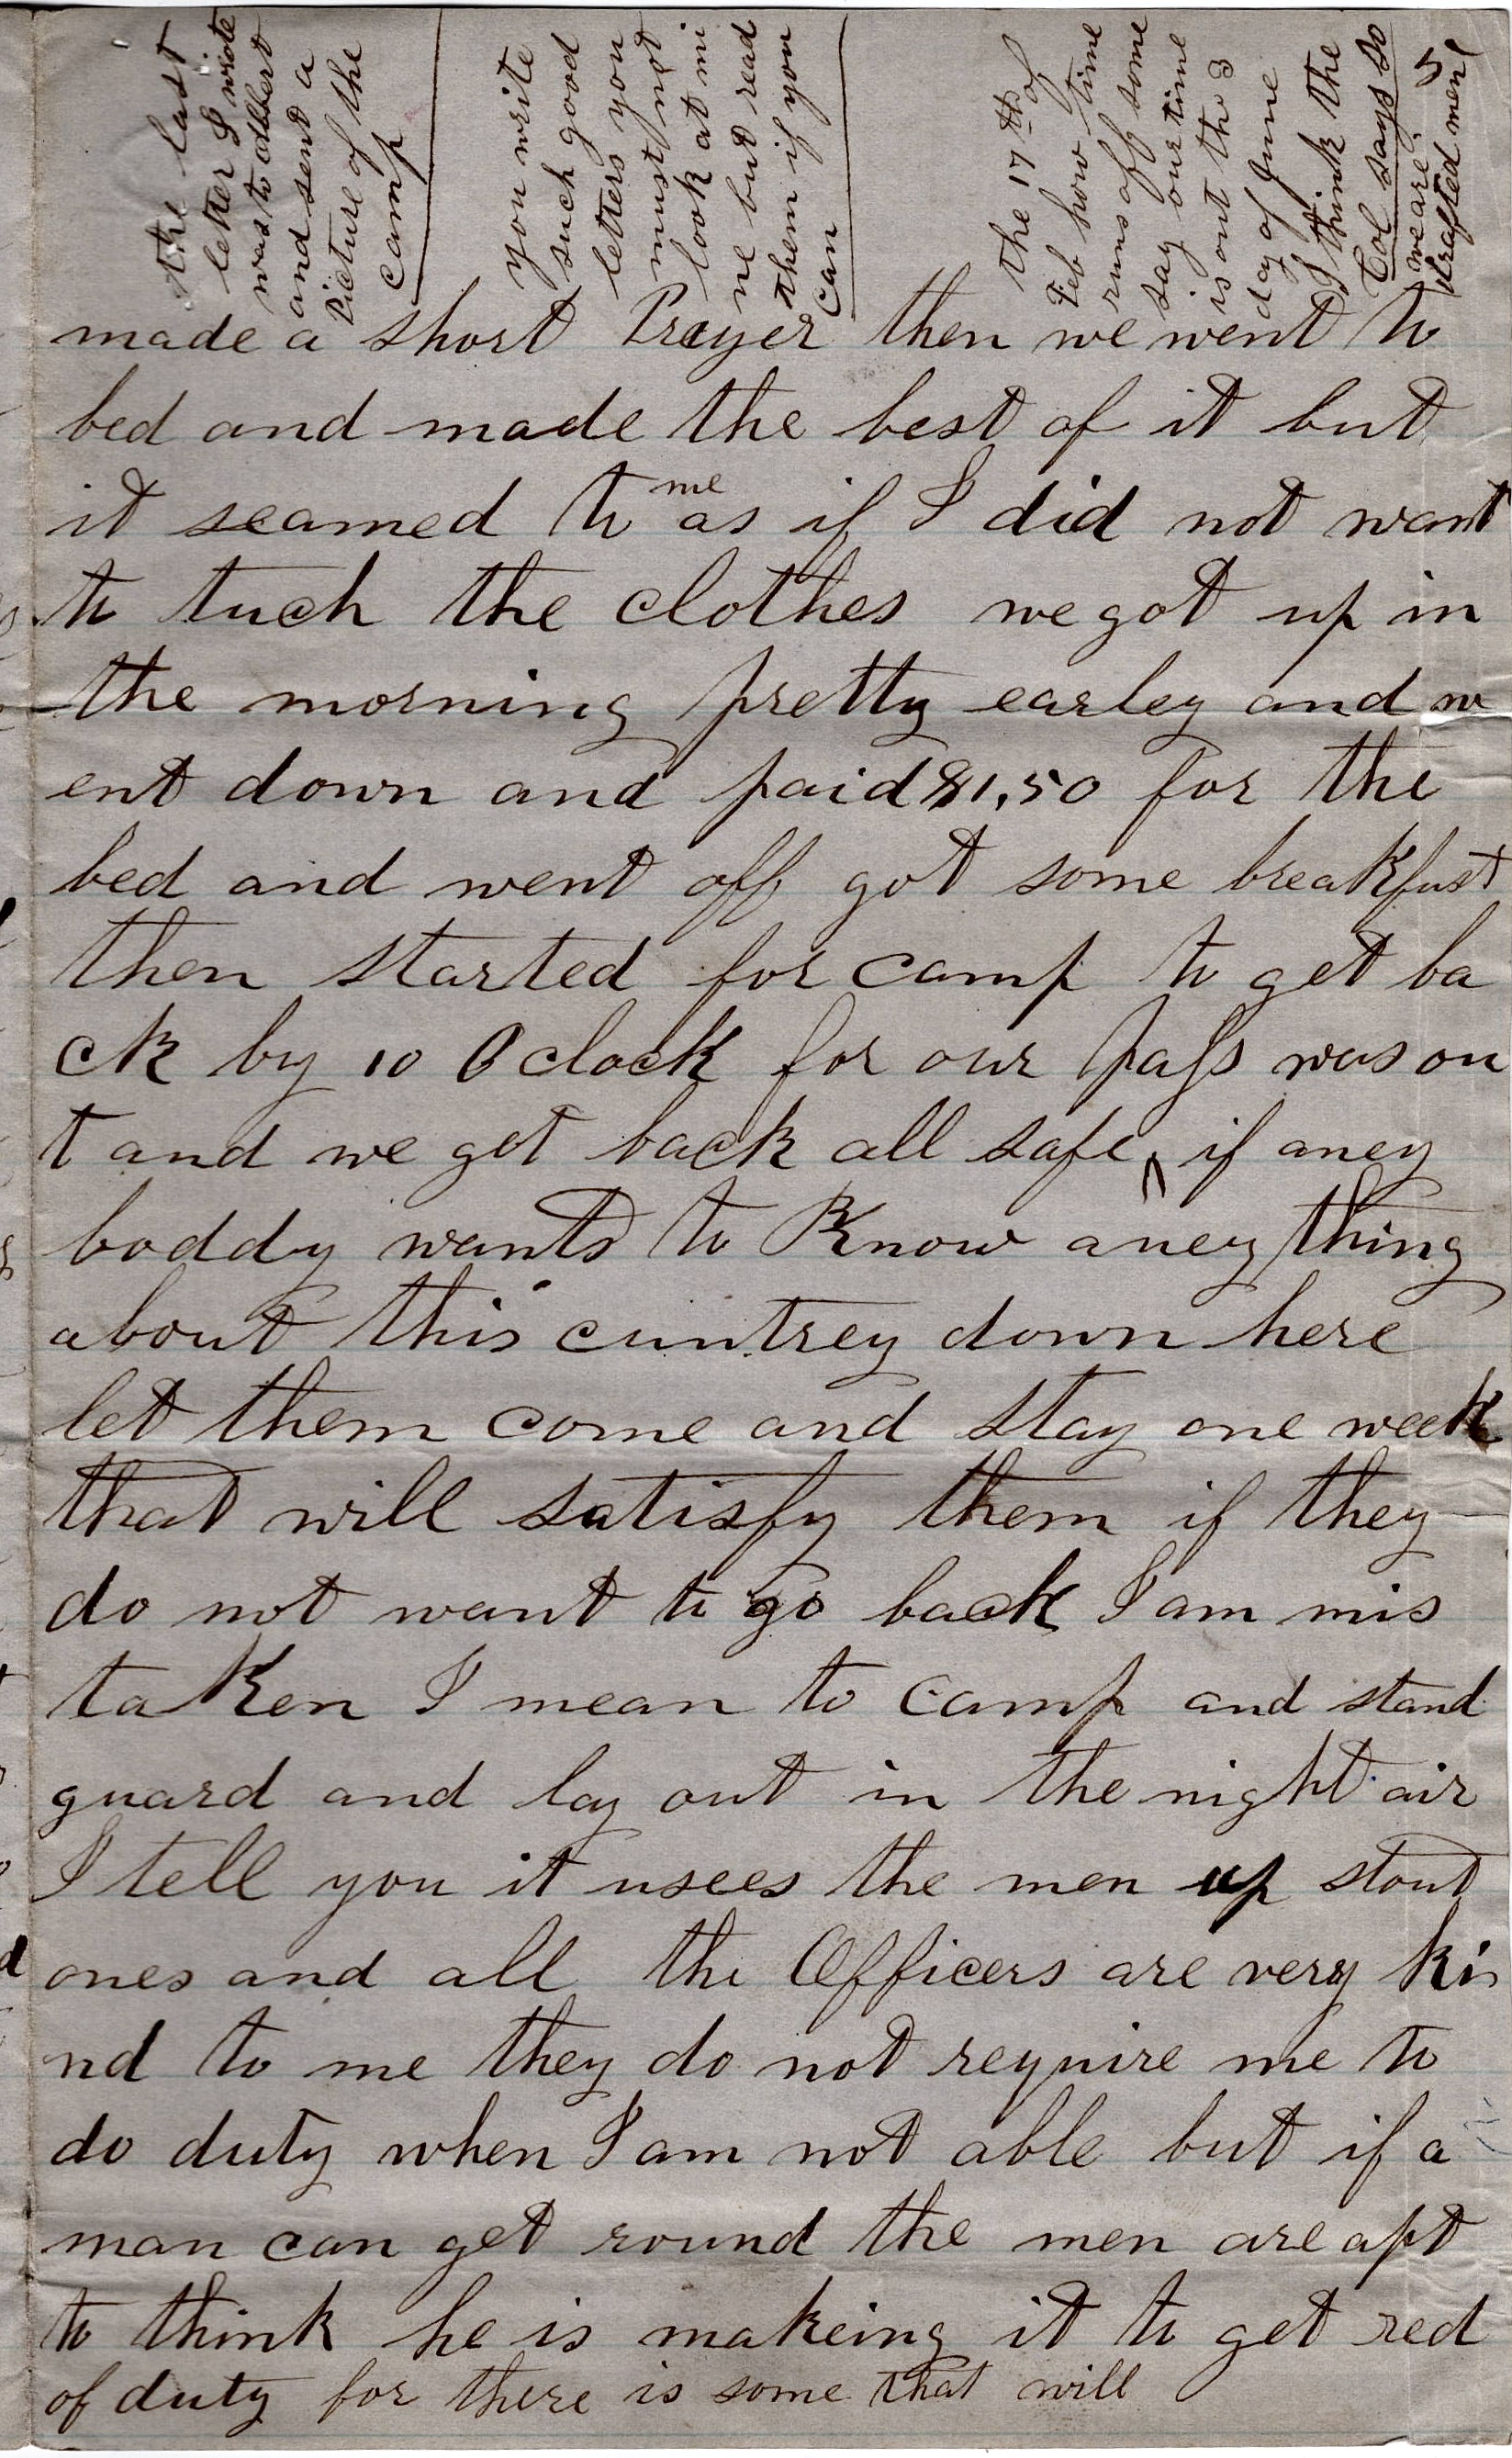 the last
letter I wrote
was to Albert
and send a
Picture of the
camp
you write
such good
letters you
must not
look at mi
ne but read
them if you
can
the 17th of
Feb how time
runs off some
say our time
is out the 3
day of June
I think the
Col says so
we are
drafted men
5
made a short Prayer then we went to
bed and made the best of it but
it seamed to me as if I did not want
to tuch the clothes we got up in
the morning pretty earley and w
ent down and paid $1,50 for the
bed and went off got some breakfust
then started for camp to get ba
ck by 10 Oclock for our pass was ou
t and we got back all safe, if aney
boddy wants to Know aney thing
about this cuntrey down here
let them come and stay one week
that will satisfy them if they
do not want to go back I am mis
taken I mean to camp and stand
guard and lay out in the night air
I tell you it usees the men up stout
ones and all the Officers are very ki
nd to me they do not require me to
do duty when I am not able but if a
man can get round the men are apt
to think he is makeing it to get red
of duty for there is some that will